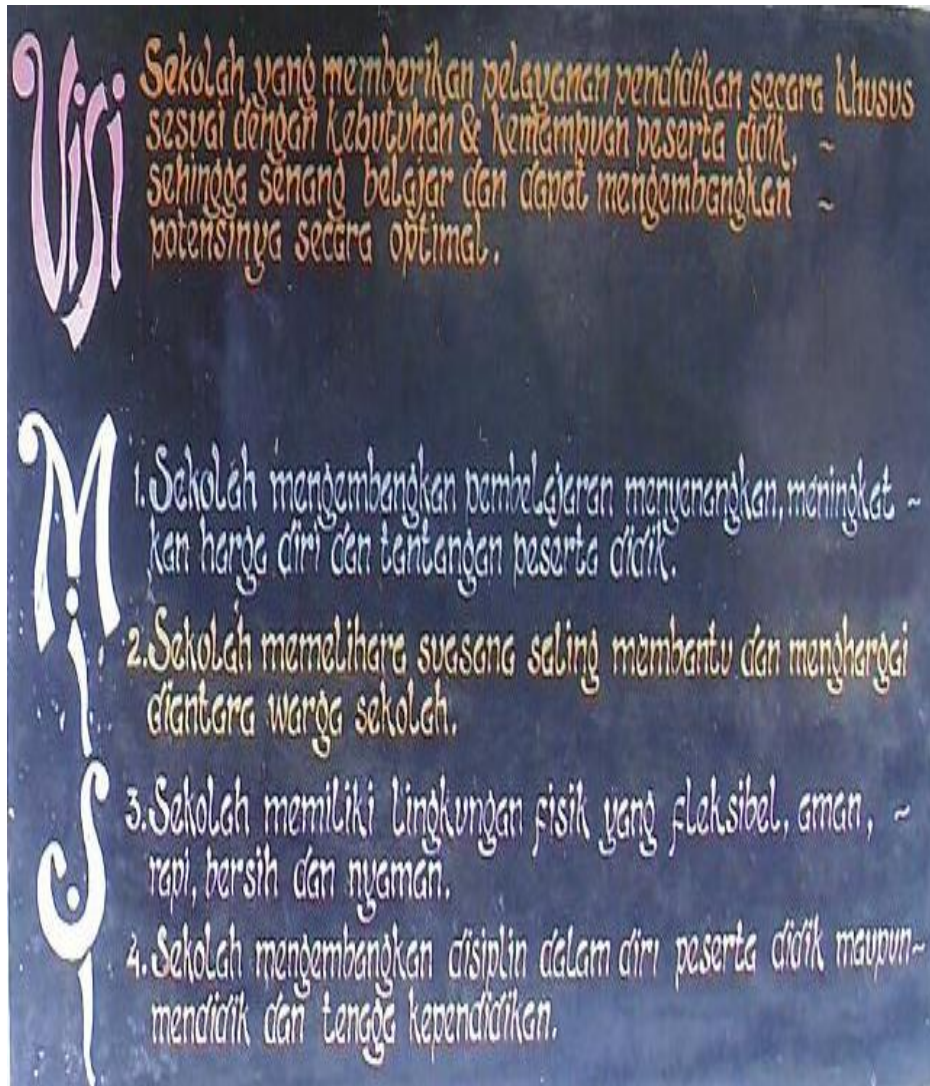 Visi
Sekolah yang memberikan pelayanan pendidikan secara khusus
sesuai dengan kebutuhan & kemampuan peserta didik, ~
sehingga senang belajar dan dapat mengembangkan ~
potensinya secara optimal.
Misi
1. Sekolah mengembangkan pembelajaran menyenangkan, meningkat ~
kan harga diri dan tantangan peserta didik.
2. Sekolah memelihara suasana saling membantu dan menghargai
diantara warga sekolah.
3. Sekolah memiliki lingkungan fisik yang fleksibel, aman, ~
rapi, bersih dan nyaman.
4. Sekolah mengembangkan disiplin dalam diri peserta didik maupun ~
mendidik dan tenaga kependidikan.